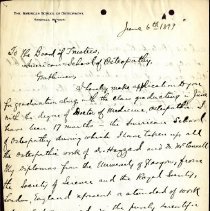 THE AMERICAN SCHOOL OF OSTEOPATHY,
KIRKSVILLE, MISSOURI
June 6th 1899
To The Board of Trustees,
American School of Osteopathy,
Gentlemen:
I hereby make application to you
for graduation along with the class graduating in June
with the degree of Doctor of Medicine Osteopathic. I
have been 17 months in the American School
of Osteopathy during which I have taken up all
the Osteopathic work of Dr. Hazzard and Dr. McConnell.
My diplomas from the University of Glasgow, from
the Society of Science and the Royal Society,
London, England represent a standard of work
in the purely scientific